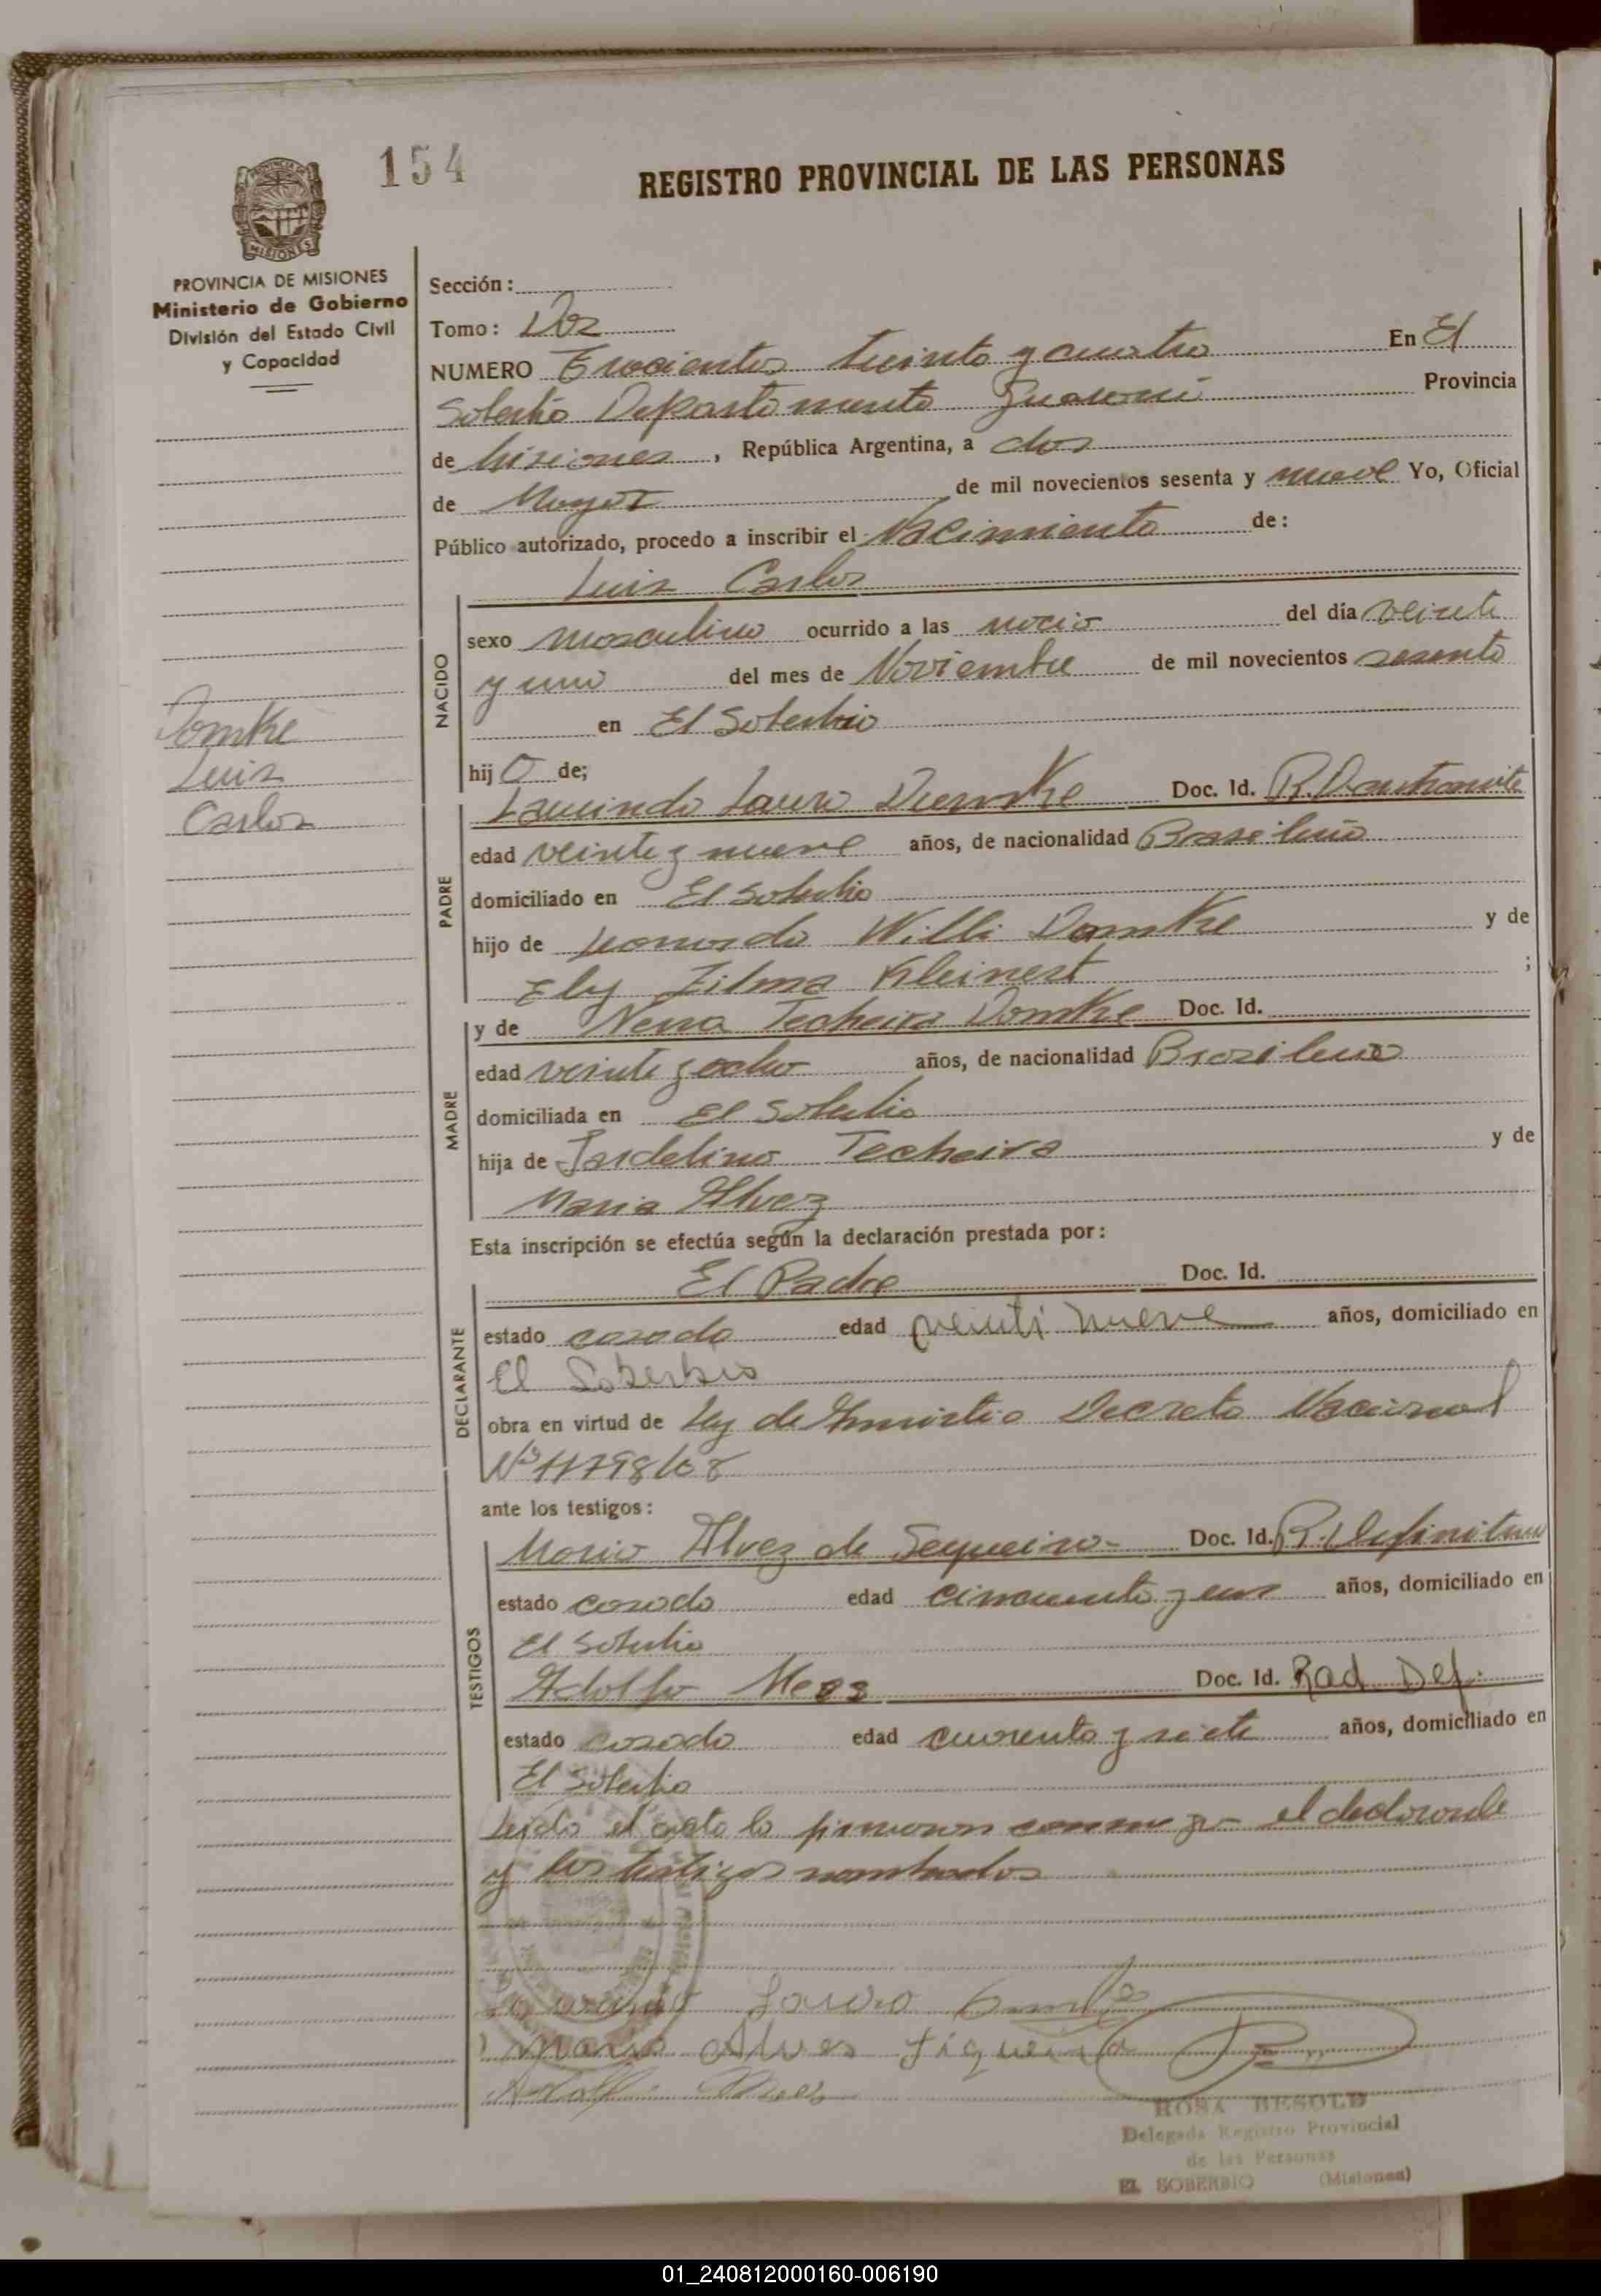 154
REGISTRO PROVINCIAL DE LAS PERSONAS
PROVINCIA DE MISIONES
Ministerio de Gobierno
División del Estado Civil
y Capacidad
Sección :
Tomo : Dos
NUMERO Trecientos treinta y cuatro En El
Soberbio Departamento Guarani Provincia
de Misiones , República Argentina, a dos
de Mayo de mil novecientos sesenta y nueve Yo, Oficial
Público autorizado, procedo a inscribir el Nacimiento de :
Luis Carlos
NACIDO
sexo masculino ocurrido a las nació del día veinte
y uno del mes de Noviembre de mil novecientos sesenta
en El Soberbio
Domke
Luis
Carlos
hij o de;
PADRE
Laurindo Lauro Domke Doc. Id. R.
edad veinte y nueve años, de nacionalidad Brasileño
domiciliado en El Soberbio
hijo de Leonardo Willi Domke y de
Ely Zilma Kleinert ;
MADRE
y de Nena Techeira Domke Doc. Id.
edad veinte y ocho años, de nacionalidad Brasileña
domiciliada en El Soberbio
hija de Jardelino Techeira y de
Maria Alvez
Esta inscripción se efectúa según la declaración prestada por :
DECLARANTE
El Padre Doc. Id.
estado casado edad veinti nueve años, domiciliado en
El Soberbio
obra en virtud de Ley de Amnistia Decreto Nacional
Nº 11798/68
ante los testigos :
TESTIGOS
Mario Alvez de Sequeira Doc. Id. R. Definitiva
estado casado edad cincuenta y uno años, domiciliado en
El Soberbio
Adolfo Mees Doc. Id. Rad. Def.
estado casado edad cuarenta y siete años, domiciliado en
El Soberbio
Leida el acta la firmaron conmigo el declarante
y los testigos nombrados
Laurindo Lauro Domke
Mario Alves Siqueira
Adolfo Mees
ROSA BESOLD
Delegada Registro Provincial
de las Personas
EL SOBERBIO (Misiones)
01_240812000160-006190